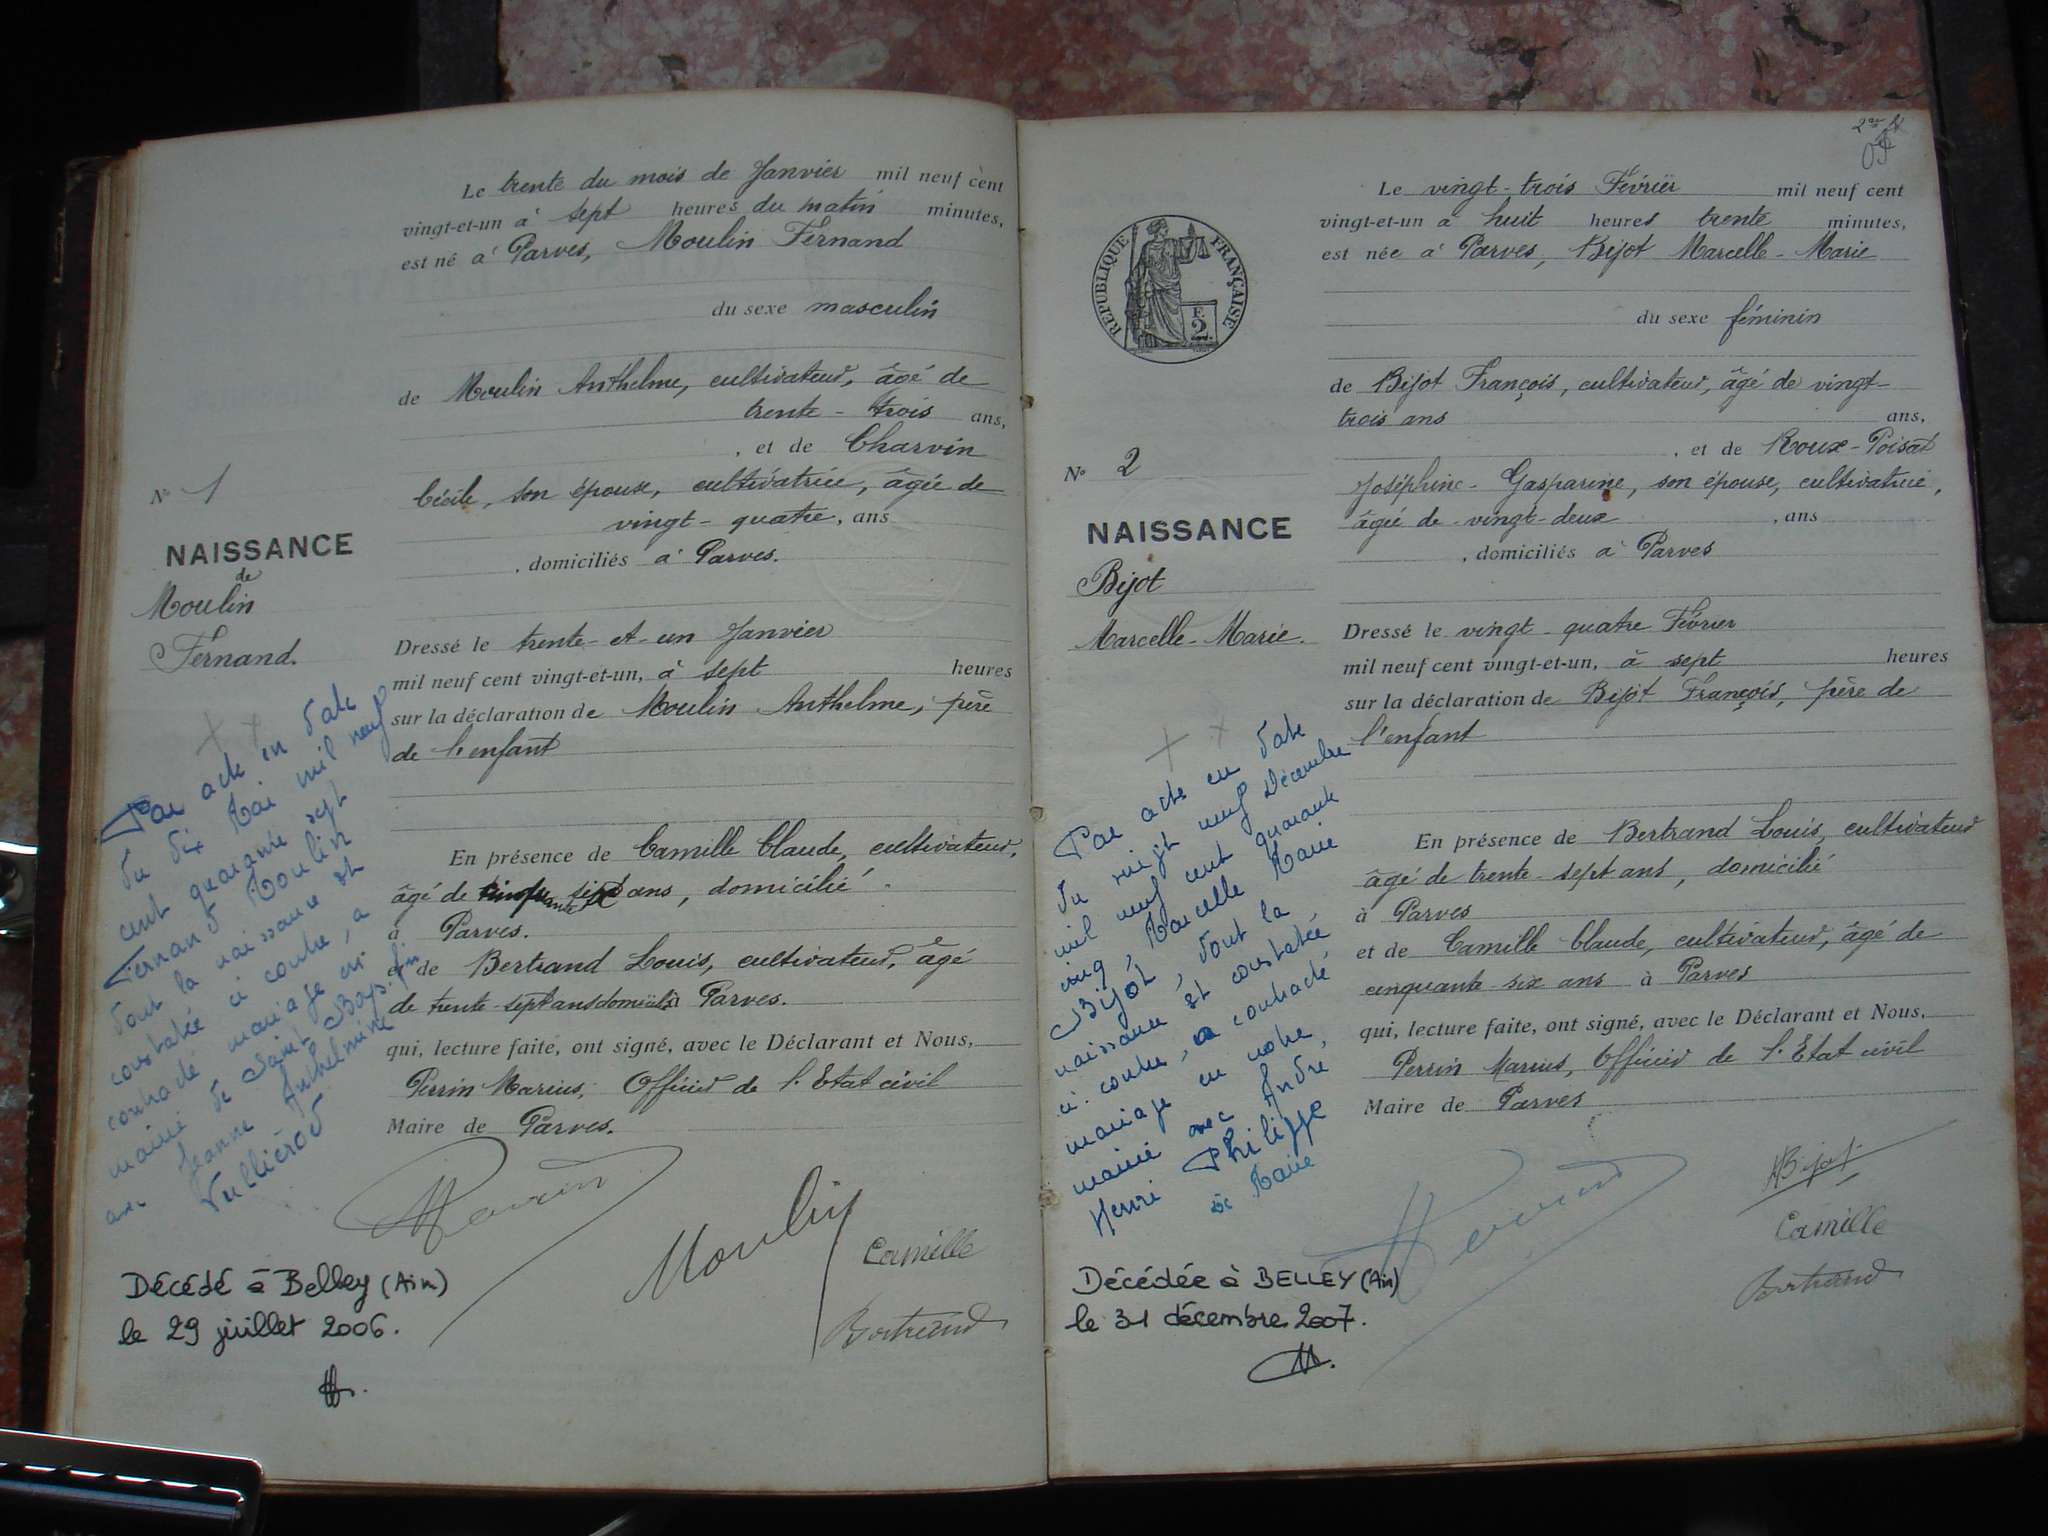 Le trente du mois de Janvier mil neuf cent
vingt-et-un à sept heures du matin minutes,
est né à Parves, Moulin Fernand
du sexe masculin
de Moulin Anthelme, cultivateur, âgé de
trente-trois ans,
, et de Charvin
Cécile, son épouse, cultivatrice, âgée de
vingt-quatre, ans
, domiciliés à Parves.
Nº 1
NAISSANCE
de
Moulin
Fernand.
Dressé le trente-et-un Janvier
mil neuf cent vingt-et-un, à sept heures
sur la déclaration de Moulin Anthelme, père
de l'enfant
En présence de Camille Claude, cultivateur,
âgé de ans, domicilié
à Parves.
et de Bertrand Louis, cultivateur, âgé
de trente-sept ans domicilié à Parves.
qui, lecture faite, ont signé, avec le Déclarant et Nous,
Perrin Marius, Officier de l'Etat civil
Maire de Parves.
Par acte en date
du dix Mai mil neuf
cent quarante sept
Fernand Moulin
dont la naissance est
constatée ci contre, a
contracté mariage en
mairie de Saint
avec Jeanne Anthelmine
Vulliérod
Moulin
Camille
Bertrand
Décédé à Belley (Ain)
le 29 juillet 2006.
RÉPUBLIQUE FRANÇAISE
2
Le vingt-trois Février mil neuf cent
vingt-et-un à huit heures trente minutes,
est née à Parves, Bijot Marcelle-Marie
du sexe féminin
de Bijot François, cultivateur, âgé de vingt-
trois ans ans,
, et de Roux-Poisat
Joséphine-Gasparine, son épouse, cultivatrice,
âgée de vingt-deux , ans
, domiciliés à Parves
Nº 2
NAISSANCE
Bijot
Marcelle-Marie.
Dressé le vingt-quatre Février
mil neuf cent vingt-et-un, à sept heures
sur la déclaration de Bijot François, père de
l'enfant
En présence de Bertrand Louis, cultivateur
âgé de trente-sept ans, domicilié
à Parves
et de Camille Claude, cultivateur, âgé de
cinquante-six ans à Parves
qui, lecture faite, ont signé, avec le Déclarant et Nous,
Perrin Marius, Officier de l'Etat civil
Maire de Parves
Par acte en date
du vingt neuf Décembre
mil neuf cent quarante
cinq, Marcelle Marie
Bijot, dont la
naissance est constatée
ci-contre, a contracté
mariage en notre
mairie avec André,
Henri Philippe
Marie
Bijot
Camille
Bertrand
Décédée à BELLEY (Ain)
le 31 décembre 2007.